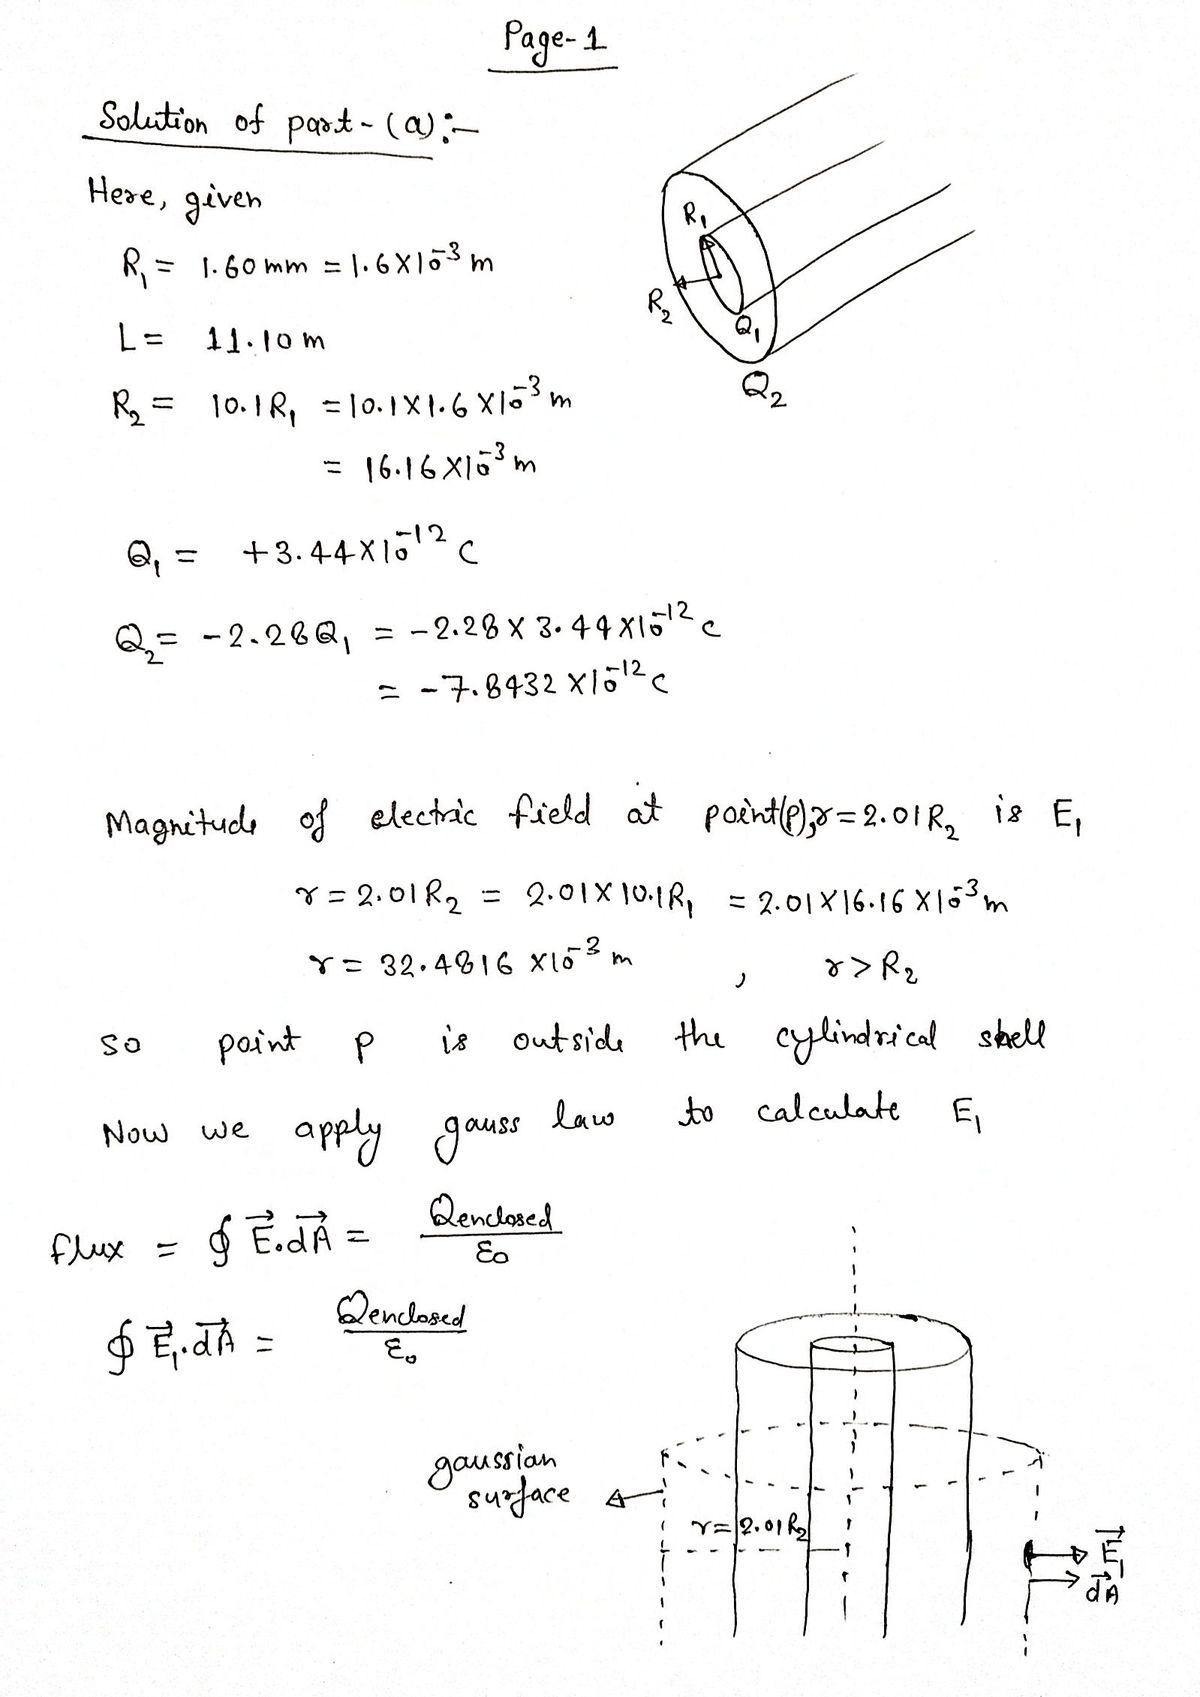 Page-1
Solution of part-(a):-
Here, given
R₁ = 1.60mm = 1.6X10⁻³ m
L = 11.10 m
R₂ = 10.1R₁ = 10.1X1.6X10⁻³ m
= 16.16X10⁻³ m
Q₁ = +3.44X10⁻¹² C
Q₂ = -2.28Q₁ = -2.28X3.44X10⁻¹² C
= -7.8432X10⁻¹² C
R₁
R₂
Q₁
Q₂
Magnitude of electric field at point(p), r=2.01R₂ is E₁
r = 2.01R₂ = 2.01X10.1R₁ = 2.01X16.16X10⁻³ m
r = 32.4816X10⁻³ m , r>R₂
so point p is outside the cylindrical shell
Now we apply gauss law to calculate E₁
flux = ∮ E⃗.dA⃗ = Qenclosed/ε₀
∮ E⃗₁.dA⃗ = Qenclosed/ε₀
gaussian
surface
r=2.01R₂
E⃗₁
dA⃗